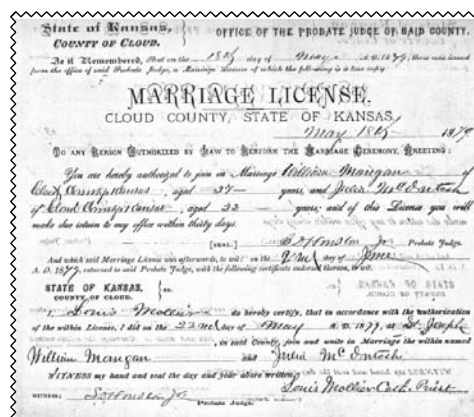 State of Kansas,
COUNTY OF CLOUD.
OFFICE OF THE PROBATE JUDGE OF SAID COUNTY.
Be it Remembered, That on the 18th day of May A. D. 1879, there was issued
from the office of said Probate Judge, a Marriage License of which the following is a true copy
MARRIAGE LICENSE.
CLOUD COUNTY, STATE OF KANSAS,
May 18th 1879
TO ANY PERSON AUTHORIZED BY LAW TO PERFORM THE MARRIAGE CEREMONY, GREETING:
You are hereby authorized to join in Marriage William Mangan of
Cloud County Kansas, aged 37 years, and Julia McIntosh
of Cloud County Kansas aged 32 years; and of this License you will
make due return to my office within thirty days.
[SEAL.] Jr Probate Judge.
And which said Marriage License was afterwards, to wit: on the day of June
A. D. 1879, returned to said Probate Judge, with the following certificate endorsed thereon, to wit.
STATE OF KANSAS,
COUNTY OF CLOUD. ss.
I, Louis Mollier do hereby certify, that in accordance with the authorization
of the within License, I did on the 22nd day of May A. D. 1879, at St. Joseph
in said County, join and unite in Marriage the within named
William Mangan and Julia McIntosh
WITNESS my hand and seal the day and year above written.
Louis Mollier Cath. Priest
WITNESS: Jr
Probate Judge.